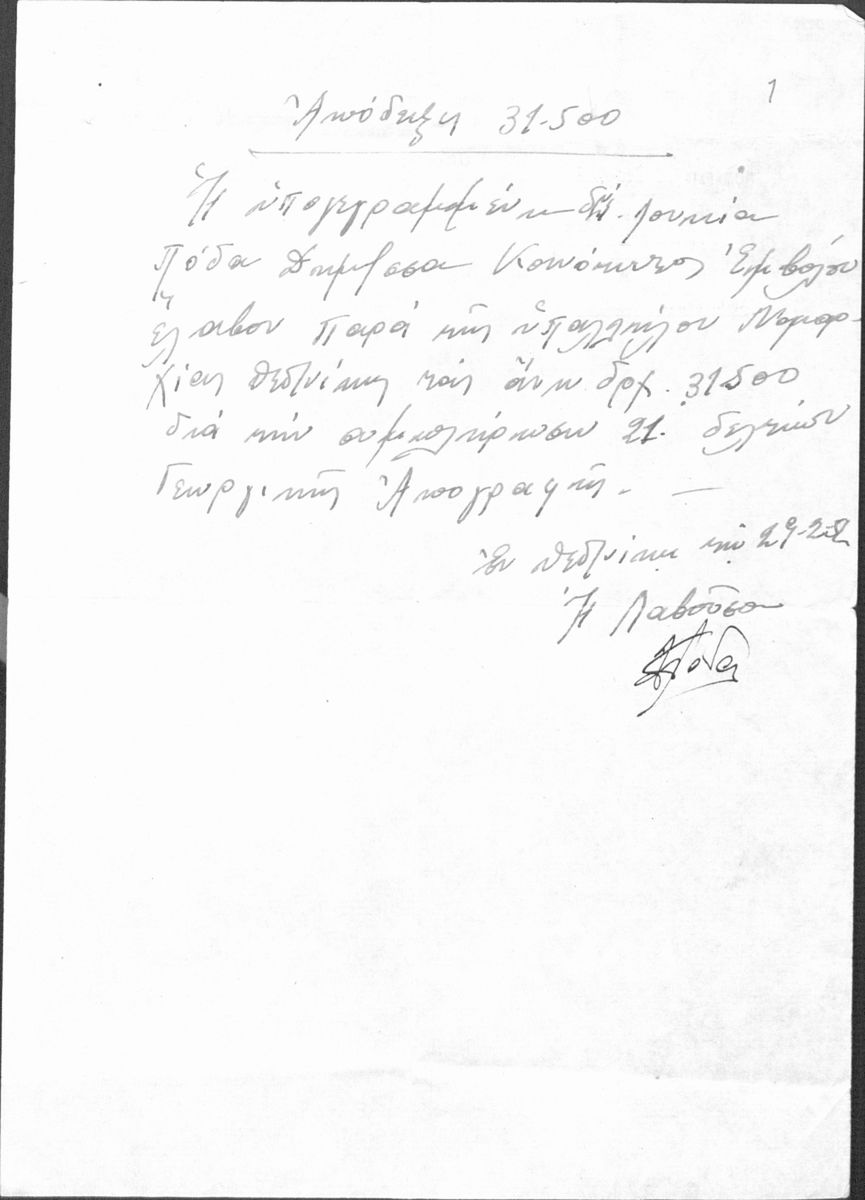 1
Ἀπόδειξις 31.500
Ἡ ὑπογεγραμμένη Λουκία
Πόδα Δημ/σσα Κοινότητος Ἐμβολου
ἔλαβον παρά τῆς ὑπαλλήλου Νομαρ-
χίας Θεσ/νίκης τάς ἄνω δρχ. 31500
διά τήν συμπλήρωσιν 21. δελτίων
Γεωργικῆς Ἀπογραφῆς. —
Ἐν Θεσ/νίκη τῆ
Ἡ Λαβοῦσα